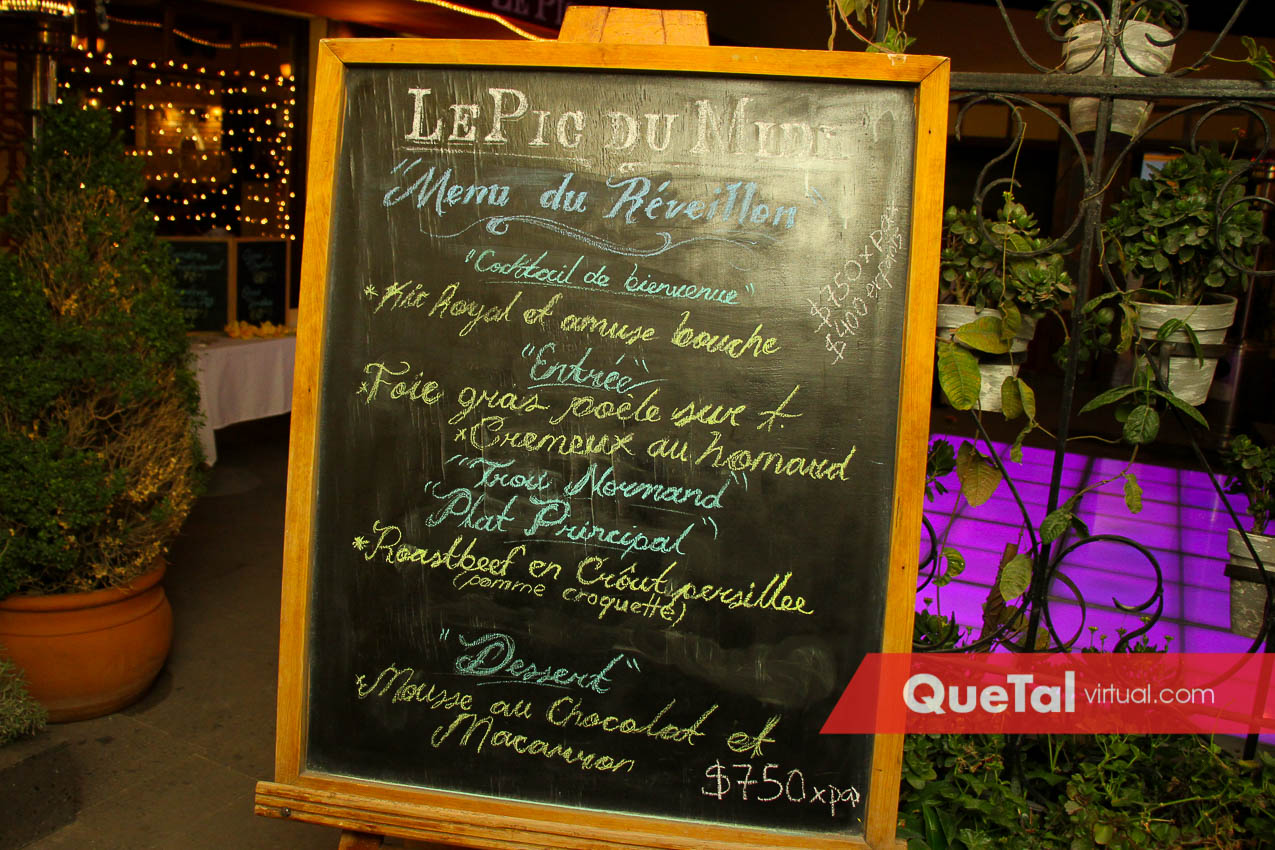 LE PIC DU MIDI
"Menu du Réveillon"
"Cocktail de bienvenue"
*Kir Royal et amuse bouche
"Entrée"
*Foie gras poêle sur t.
*Cremeux au homard
"Trou Normand"
"Plat Principal"
*Roastbeef en Croût persillee
(pomme croquette)
"Dessert"
*Mousse au Chocolat et
Macarron
$750xpa
$750 x pax
$400
QueTal virtual.com